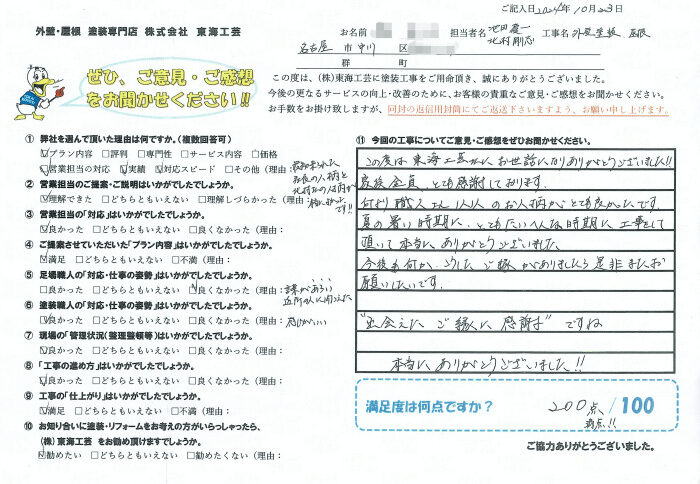 ご記入日2024年10月23日
外壁・屋根 塗装専門店 株式会社 東海工芸
お名前 担当者名 池田慶一 北村剛志 工事名 外壁塗装、屋根
名古屋市中川区
郡 町
ぜひ、ご意見・ご感想
をお聞かせください!!
この度は、(株)東海工芸に塗装工事をご用命頂き、誠にありがとうございました。
今後の更なるサービスの向上・改善のために、お客様の貴重なご意見・ご感想をお聞かせください。
お手数をお掛け致しますが、同封の返信用封筒にてご返送下さいますよう、お願い申し上げます。
① 弊社を選んで頂いた理由は何ですか。(複数回答可)
☑プラン内容 □評判 □専門性 □サービス内容 □価格
☑営業担当の対応 ☑実績 ☑対応スピード □その他(理由:
② 営業担当のご提案・ご説明はいかがでしたでしょうか。
☑理解できた □どちらともいえない □理解しづらかった(理由:
③ 営業担当の「対応」はいかがでしたでしょうか。
☑良かった □どちらともいえない □良くなかった(理由:
④ ご提案させていただいた「プラン内容」はいかがでしたでしょうか。
☑満足 □どちらともいえない □不満(理由:
⑤ 足場職人の「対応・仕事の姿勢」はいかがでしたでしょうか。
□良かった □どちらともいえない ☑良くなかった(理由:
言葉があらい
近所の人に聞こえた
⑥ 塗装職人の「対応・仕事の姿勢」はいかがでしたでしょうか。
☑良かった □どちらともいえない □良くなかった(理由:
⑦ 現場の「管理状況(整理整頓等)」はいかがでしたでしょうか。
☑良かった □どちらともいえない □良くなかった(理由:
⑧ 「工事の進め方」はいかがでしたでしょうか。
☑良かった □どちらともいえない □良くなかった(理由:
⑨ 工事の「仕上がり」はいかがでしたでしょうか。
☑満足 □どちらともいえない □不満(理由:
⑩ お知り合いに塗装・リフォームをお考えの方がいらっしゃったら、
(株)東海工芸 をお勧め頂けますでしょうか。
☑勧めたい □どちらともいえない □勧めたくない(理由:
⑪ 今回の工事についてご意見・ご感想をぜひお聞かせください。
この度は東海工芸さんにお世話になりありがとうございました!!
家族全員、とても感謝しております。
何より職人さん1人1人のお人柄がとても良かったです。
夏の暑い時期に、とてもたいへんな時期に工事をして
頂いて本当にありがとうございました
今後も何か、こうした ご縁がありましたら是非またお
願いしたいです。
"出会えた ご縁に 感謝" ですね
本当に ありがとうございました!!
満足度は何点ですか? 200点/100
満点!!
ご協力ありがとうございました。